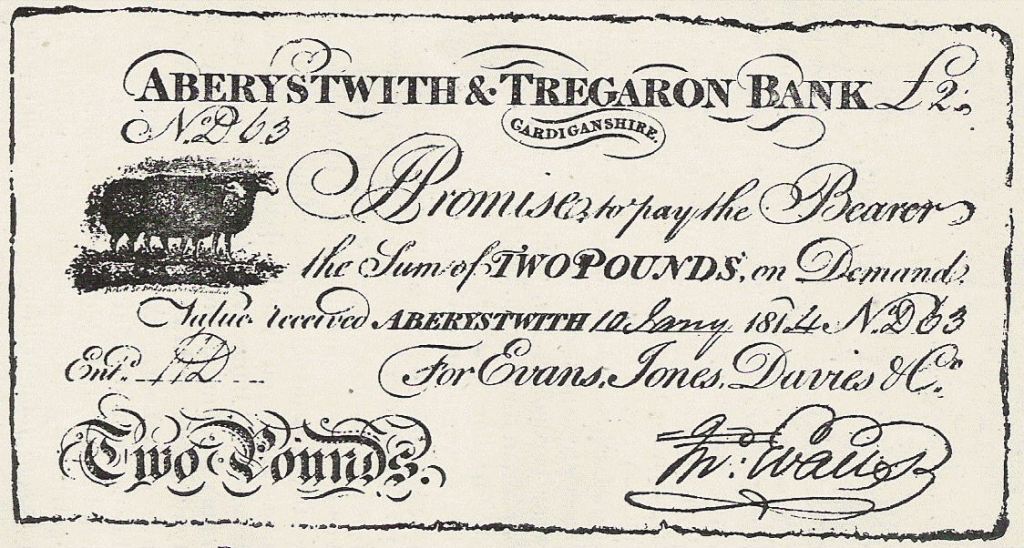 ABERYSTWITH & TREGARON BANK £2
CARDIGANSHIRE.
No. D 63
I Promise to pay the Bearer
the Sum of TWO POUNDS, on Demand
Value received ABERYSTWITH 10 Jany 1814 No. D 63
Entd.
For Evans, Jones, Davies & Co.
Two Pounds.
Jno. Evans